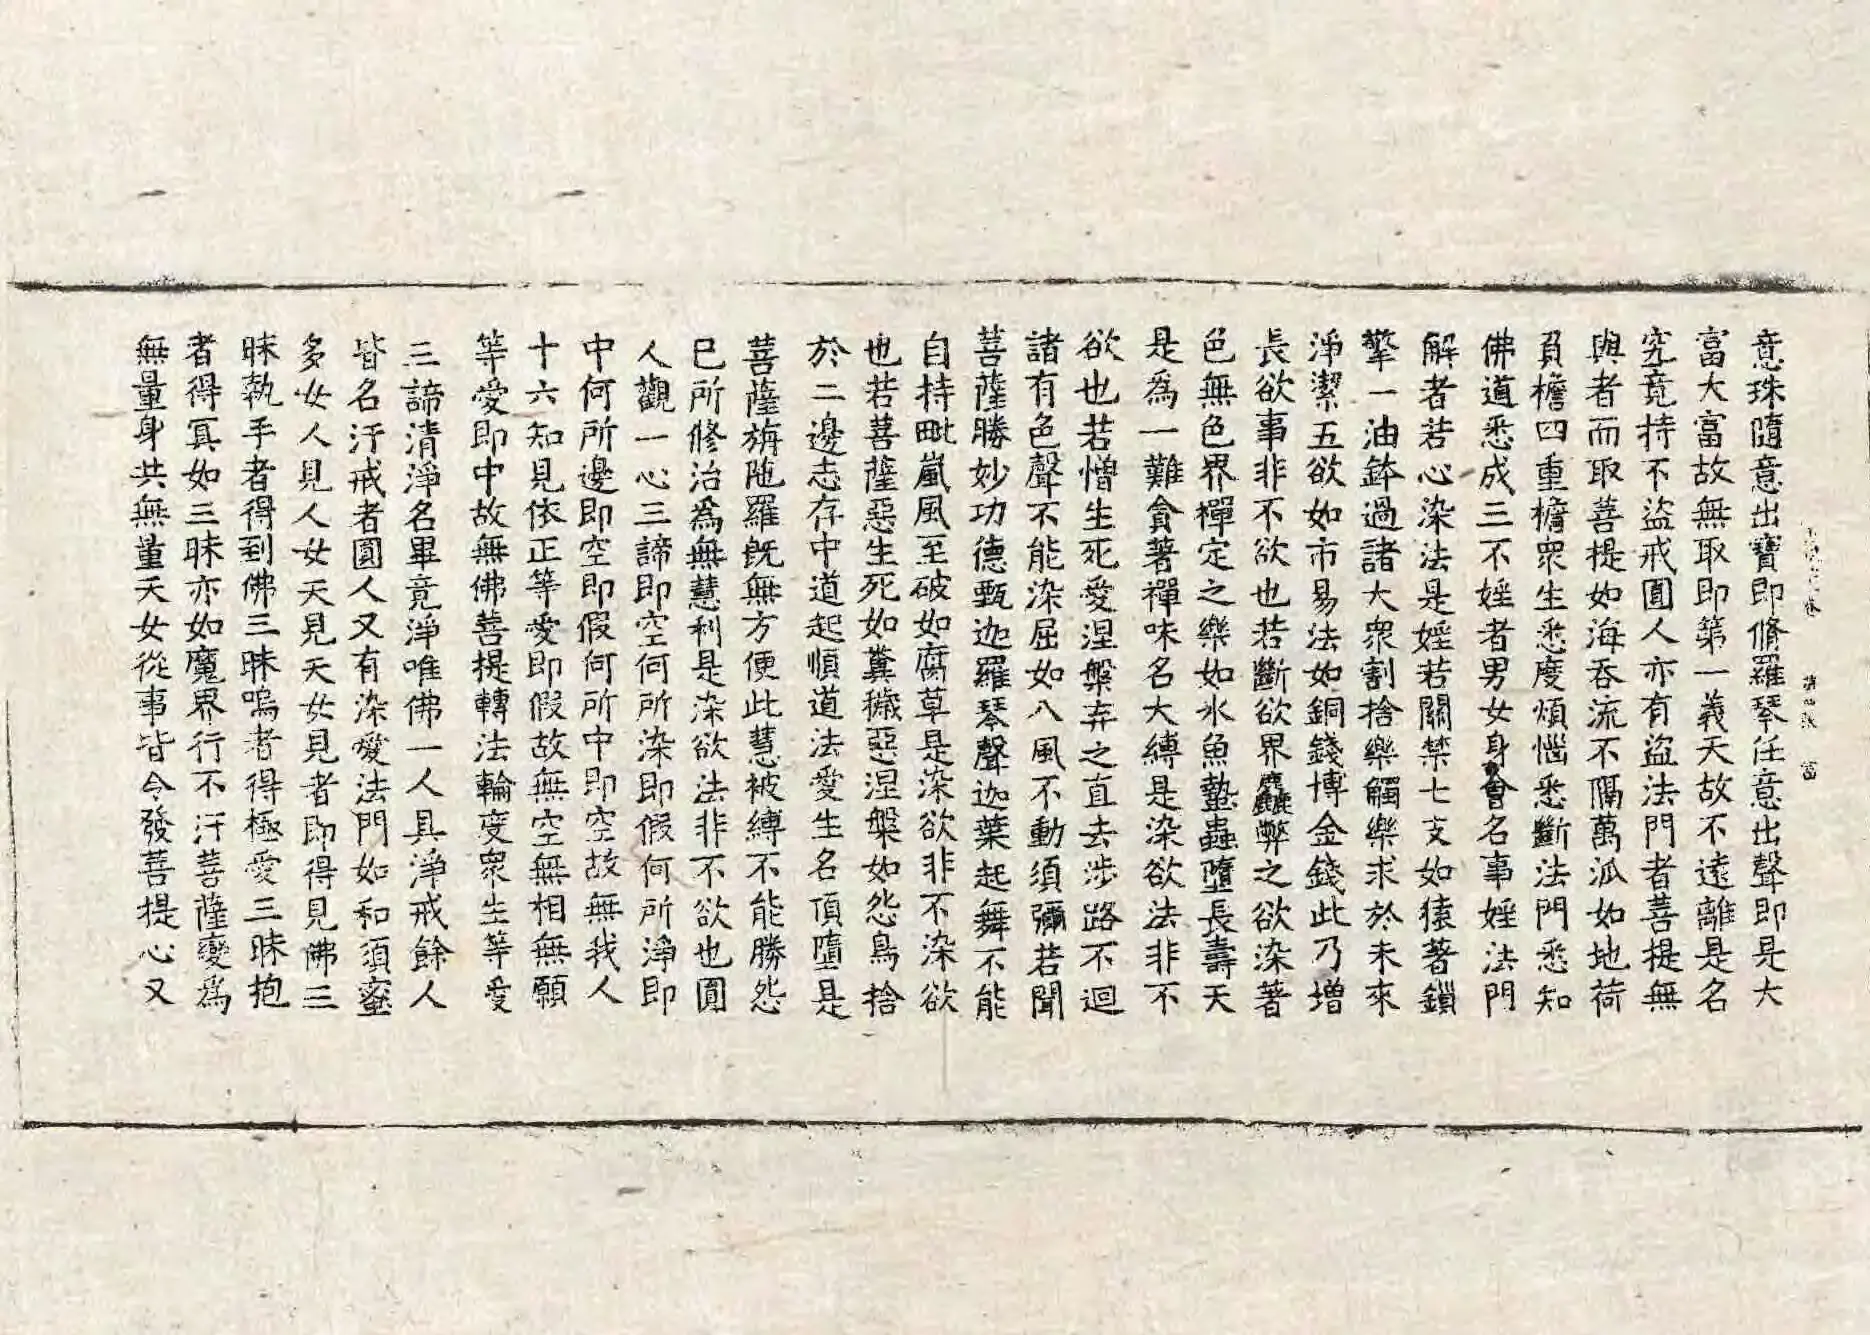 意珠隨意出寶即脩羅琴任意出聲即是大
富大富故無取即第一義天故不遠離是名
究竟持不盜戒圓人亦有盜法門者菩提無
與者而取菩提如海吞流不隔萬派如地荷
負檐四重檐眾生悉度煩惱悉斷法門悉知
佛道悉成三不婬者男女身會名事婬法門
解者若心染法是婬若關禁七支如猿著鎖
擎一油鉢過諸大眾割捨樂觸樂求於未來
淨潔五欲如市易法如銅錢博金錢此乃增
長欲事非不欲也若斷欲界麤弊之欲染著
色無色界禪定之樂如氷魚蟄蟲墮長壽天
是為一難貪著禪味名大縛是染欲法非不
欲也若憎生死愛涅槃弃之直去涉路不迴
諸有色聲不能染屈如八風不動須彌若聞
菩薩勝妙功德甄迦羅琴聲迦葉起舞不能
自持毗嵐風至破如腐草是染欲非不染欲
也若菩薩惡生死如糞穢惡涅槃如怨鳥捨
於二邊志存中道起順道法愛生名頂墮是
菩薩旃陁羅既無方便此慧被縛不能勝怨
已所修治為無慧利是染欲法非不欲也圓
人觀一心三諦即空何所染即假何所淨即
中何所邊即空即假何所中即空故無我人
十六知見依正等愛即假故無空無相無願
等愛即中故無佛菩提轉法輪度眾生等愛
三諦清淨名畢竟淨唯佛一人具淨戒餘人
皆名汙戒者圓人又有染愛法門如和須蜜
多女人見人女天見天女見者即得見佛三
昧執手者得到佛三昧嗚者得極愛三昧抱
者得冥如三昧亦如魔界行不汙菩薩變為
無量身共無量天女從事皆令發菩提心又